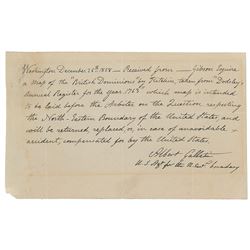 Washington December 26th 1828 — Received from — Gibson Esquire
a Map of the "British Dominions" by Kitchin, taken from "Dodsley
Annual Register for the year 1763" which map is intended
to be laid before the Arbiter on the Question respecting
the North-Eastern Boundary of the United States, and
will be returned, replaced or, in case of unavoidable
accident, compensated for by the United States.
Albert Gallatin
U.S. Agt for the N. East. boundary